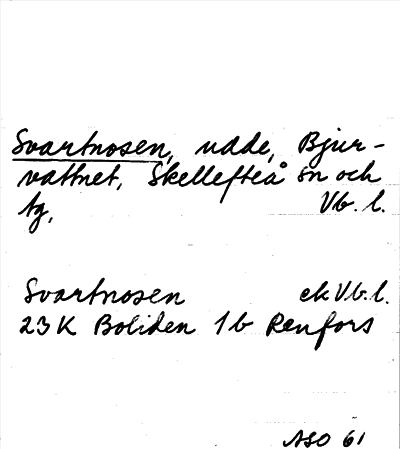 Svartnosen, udde, Bjur-
vattnet, Skellefteå sn och
tg, Vb. l.
Svartnosen ek Vb. l.
23 K Boliden 1 b Renfors
ASO 61